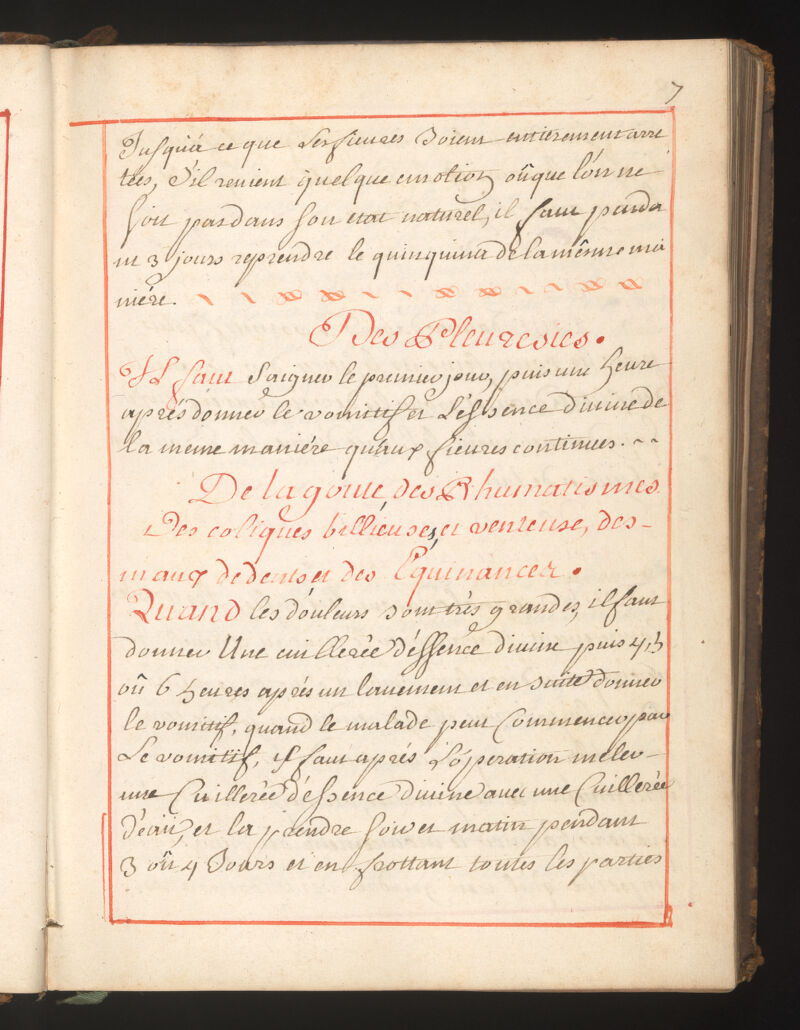 7
Jusqu'à ce que les fieures soient entierement arre
tées, s'il revient quelque emotion oûque l'on ne
soit pas dans son etat naturel, il faut penda
nt 3 jours reprendre le quinquina de la même ma
niére.
Des Pleuresies.
Il faut saigner le premier jour, puis une heure
aprés donner le vomitif et L'éssence divine de
la meme maniére qu'aux fieures continues.
De la goute, des Rhumatismes
Des coliques billieuses et venteuse, des-
maux de dents et des Equinancez.
Quand les doûleurs sont très grandes, il faut
donner Une cuillerée d'éssence divine puis 4, 5
oû 6 heures aprés un lavement et en suite donner
le vomitif, quand le malade peut Commencer par
Le vomitif, il faut aprés L'óperation meler-
une Cuillerée d'éssence divine avec une Cuillerée
d'eau, et la prendre soir et matin pendant
3 oû 4 Jours et en frottant toutes les parties